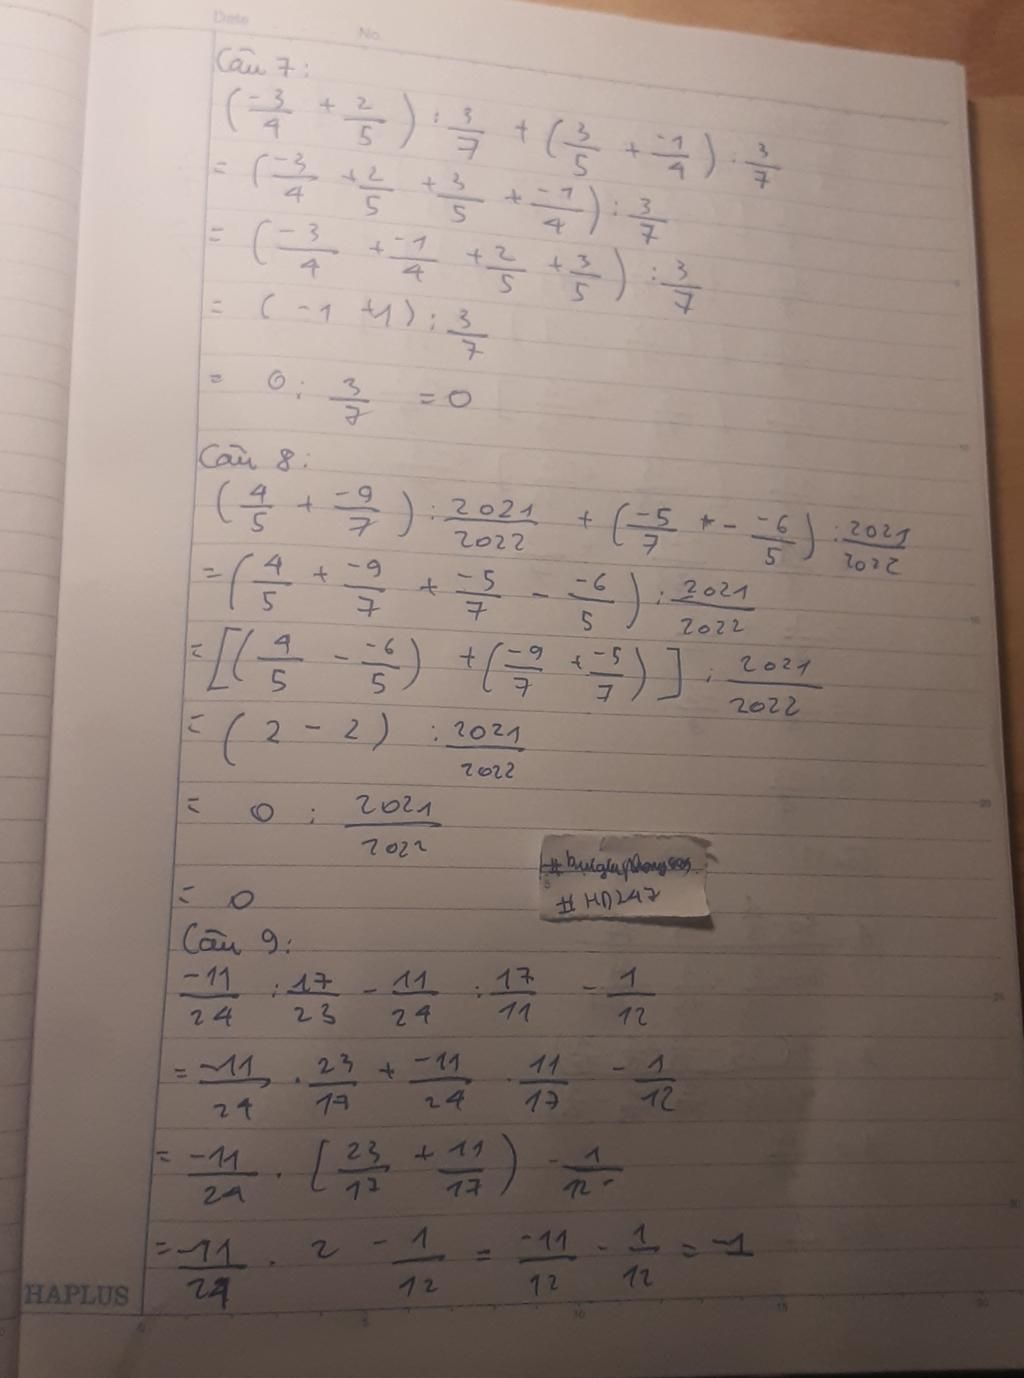 Date
No.
Câu 7:
(-3/4 + 2/5) : 3/7 + (3/5 + -1/4) : 3/7
= (-3/4 + 2/5 + 3/5 + -1/4) : 3/7
= (-3/4 + -1/4 + 2/5 + 3/5) : 3/7
= (-1 + 1) : 3/7
= 0 : 3/7 = 0
Câu 8:
(4/5 + -9/7) : 2021/2022 + (-5/7 - -6/5) : 2021/2022
= (4/5 + -9/7 + -5/7 - -6/5) : 2021/2022
= [(4/5 - -6/5) + (-9/7 + -5/7)] : 2021/2022
= (2 - 2) : 2021/2022
= 0 : 2021/2022
= 0
# HD247
Câu 9:
-11/24 : 17/23 - 11/24 : 17/11 - 1/12
= -11/24 . 23/17 + -11/24 . 11/17 - 1/12
= -11/24 . (23/17 + 11/17) - 1/12
= -11/24 . 2 - 1/12 = -11/12 - 1/12 = -1
HAPLUS